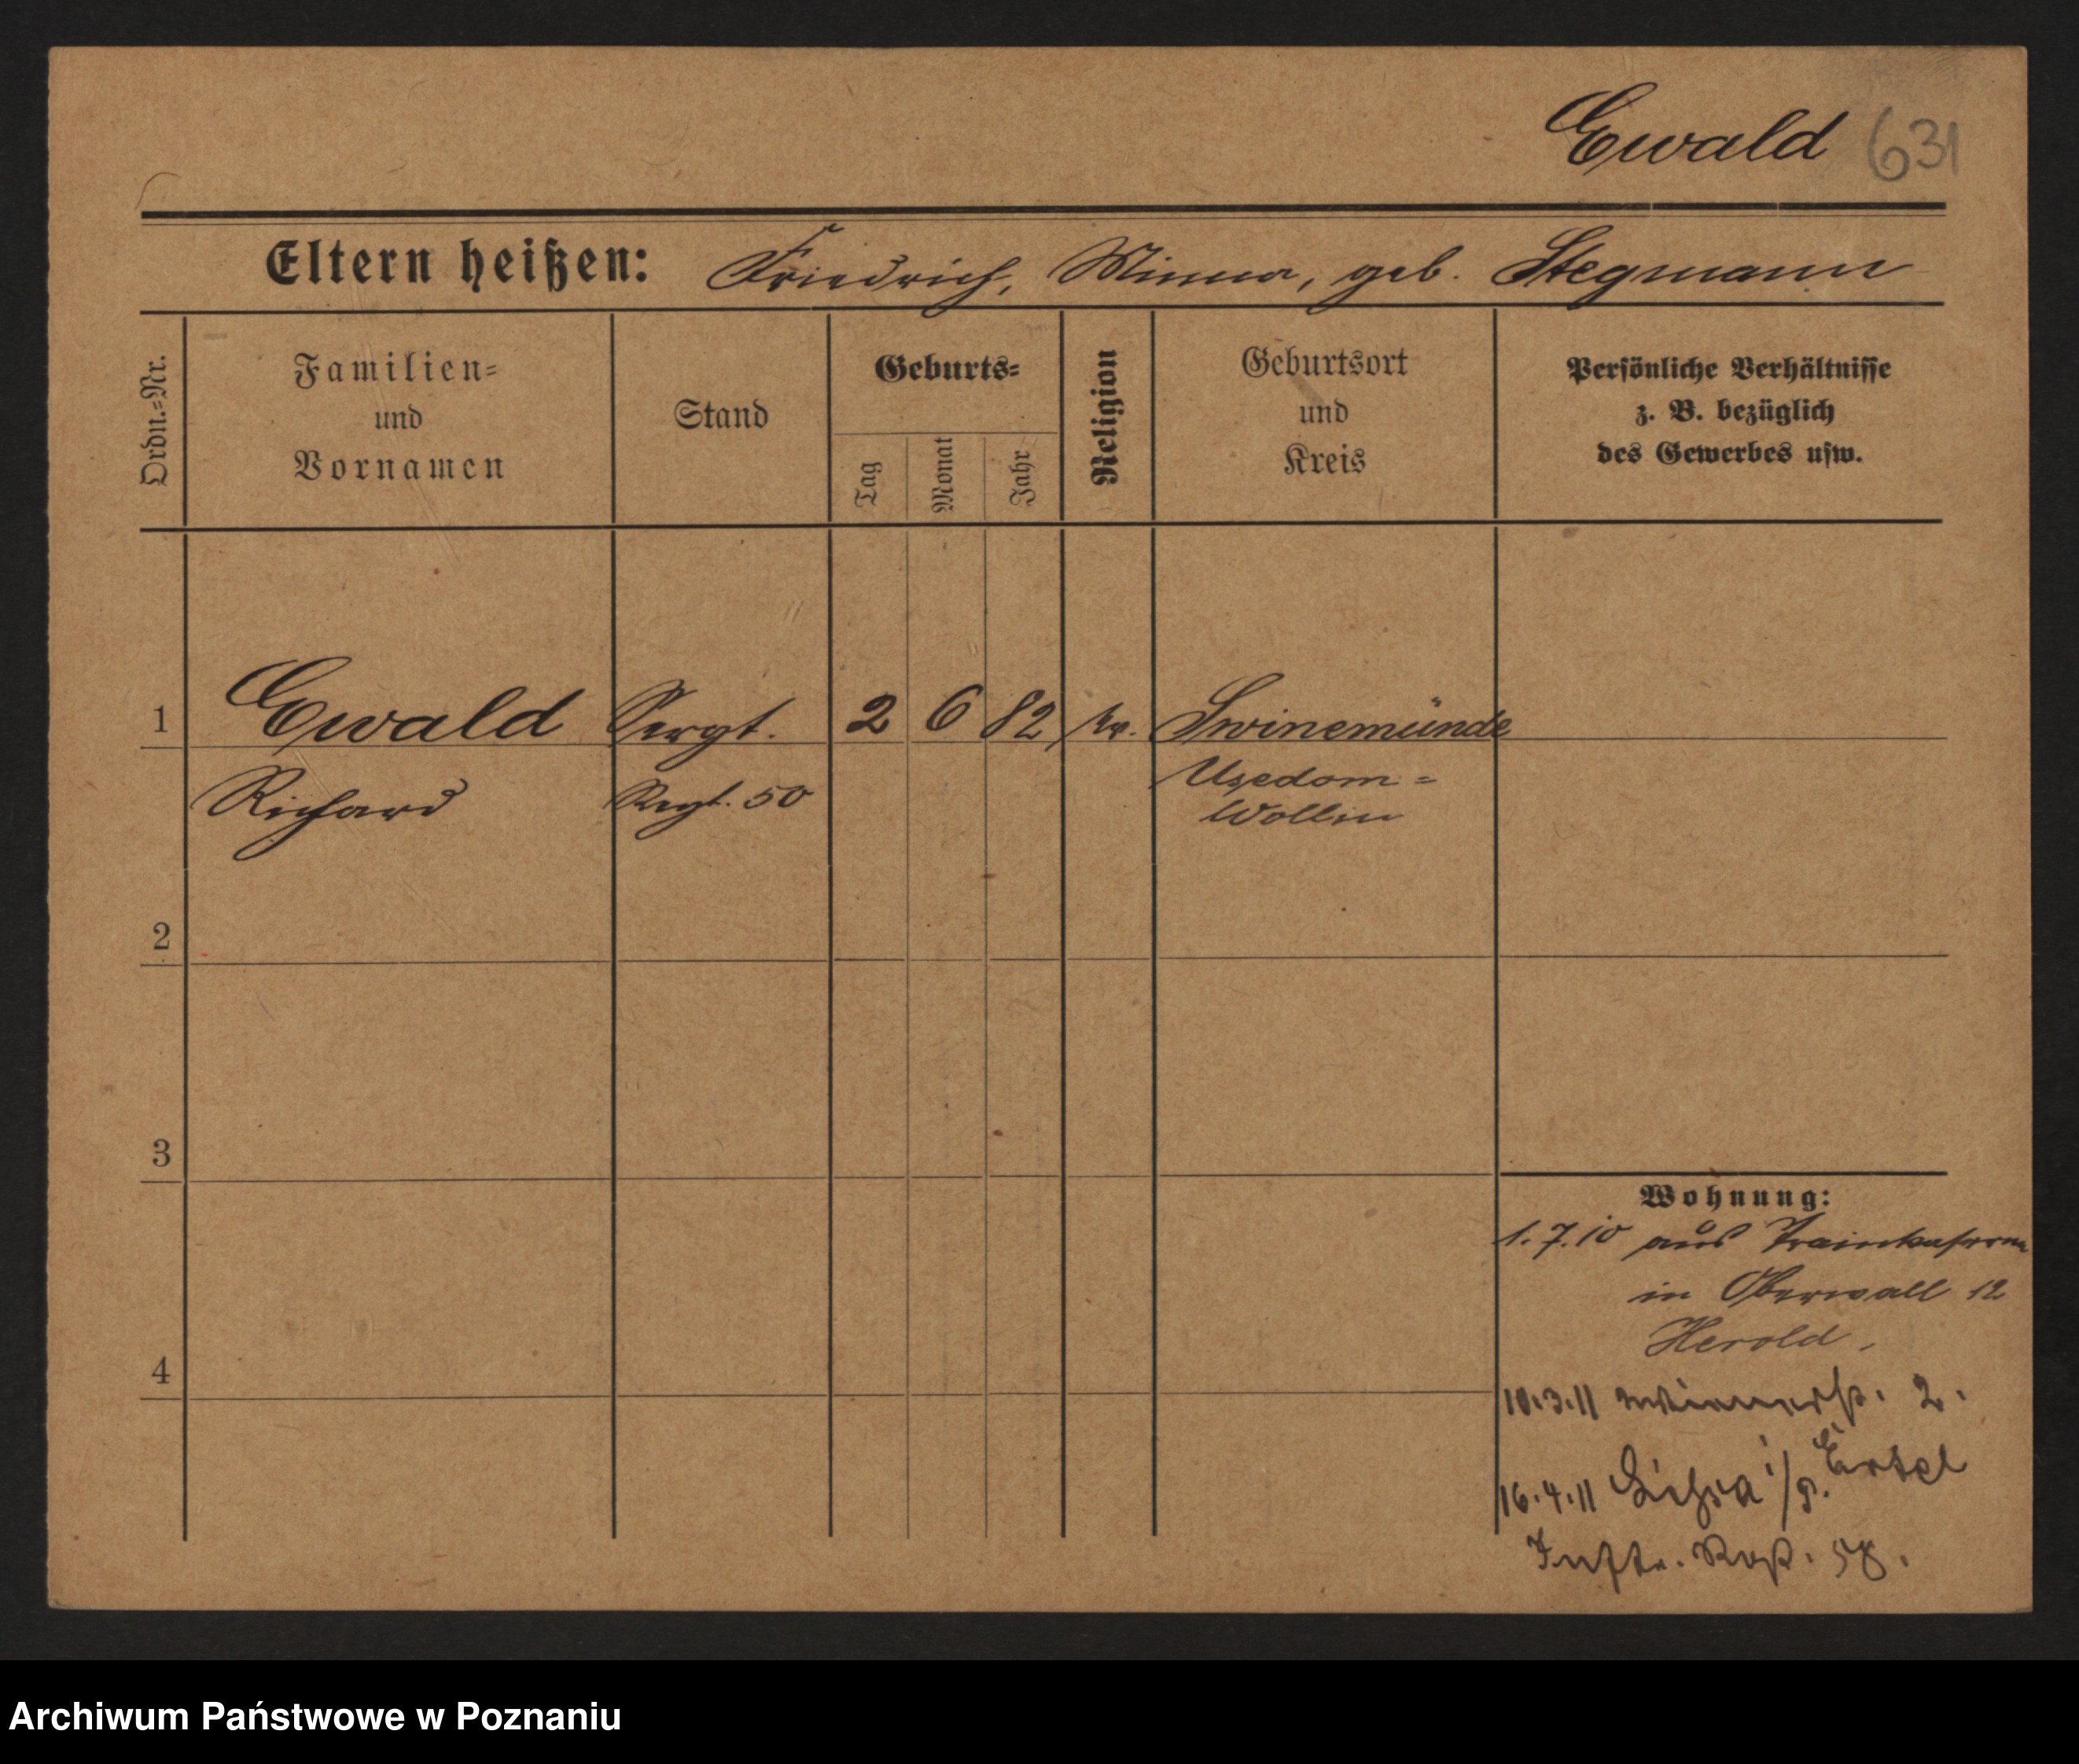 Ewald 631
Eltern heißen: Friedrich, Minna, geb. Stegmann
Ordn.=Nr.
Familien=
und
Vornamen
Stand
Geburts=
Tag
Monat
Jahr
Religion
Geburtsort
und
Kreis
Persönliche Verhältnisse
z. B. bezüglich
des Gewerbes usw.
1 Ewald Sergt. 2 6 82 ev. Swinemünde
Richard Regt. 50 Usedom=
Wollin
2
3
4
Wohnung:
1.7.10 aus Trainkaserne
in Oberwall 12
Herold.
10.3.11 2.
16.4.11 Lissa i/P.
Inftr. Regt. 58.
Archiwum Państwowe w Poznaniu